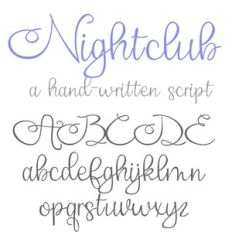 Nightclub
a hand-written script
ABCDE
abcdefghijklmn
opqrstuvwxyz